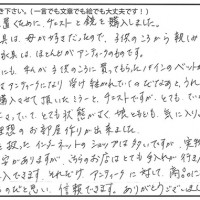 き下さい。(一言でも文章でも絵でも大丈夫です!)
置くために、チェストと鏡を購入しました。
具は、母が好きだったので、子供のころから親しみ
家具は、ほとんどがアンティークのものです。
にも、私が子供のころに買ってもらったパインのベッドが
はアンティークになり受け継がれていくのだなあと、うれ
購入させて頂いたミラーと、チェストですが、とても、てい
なさっていて、とても状態がよく娘ともども、気に入り
理想のお部屋作りが出来ました。
を扱ったインターネットのショップは多いですが、実物
安がありますが、こちらのお店はとても手入れが行き
入できます。それだけアンティークに対して、商品に
のだと思い、信頼できます。ありがとうございまし